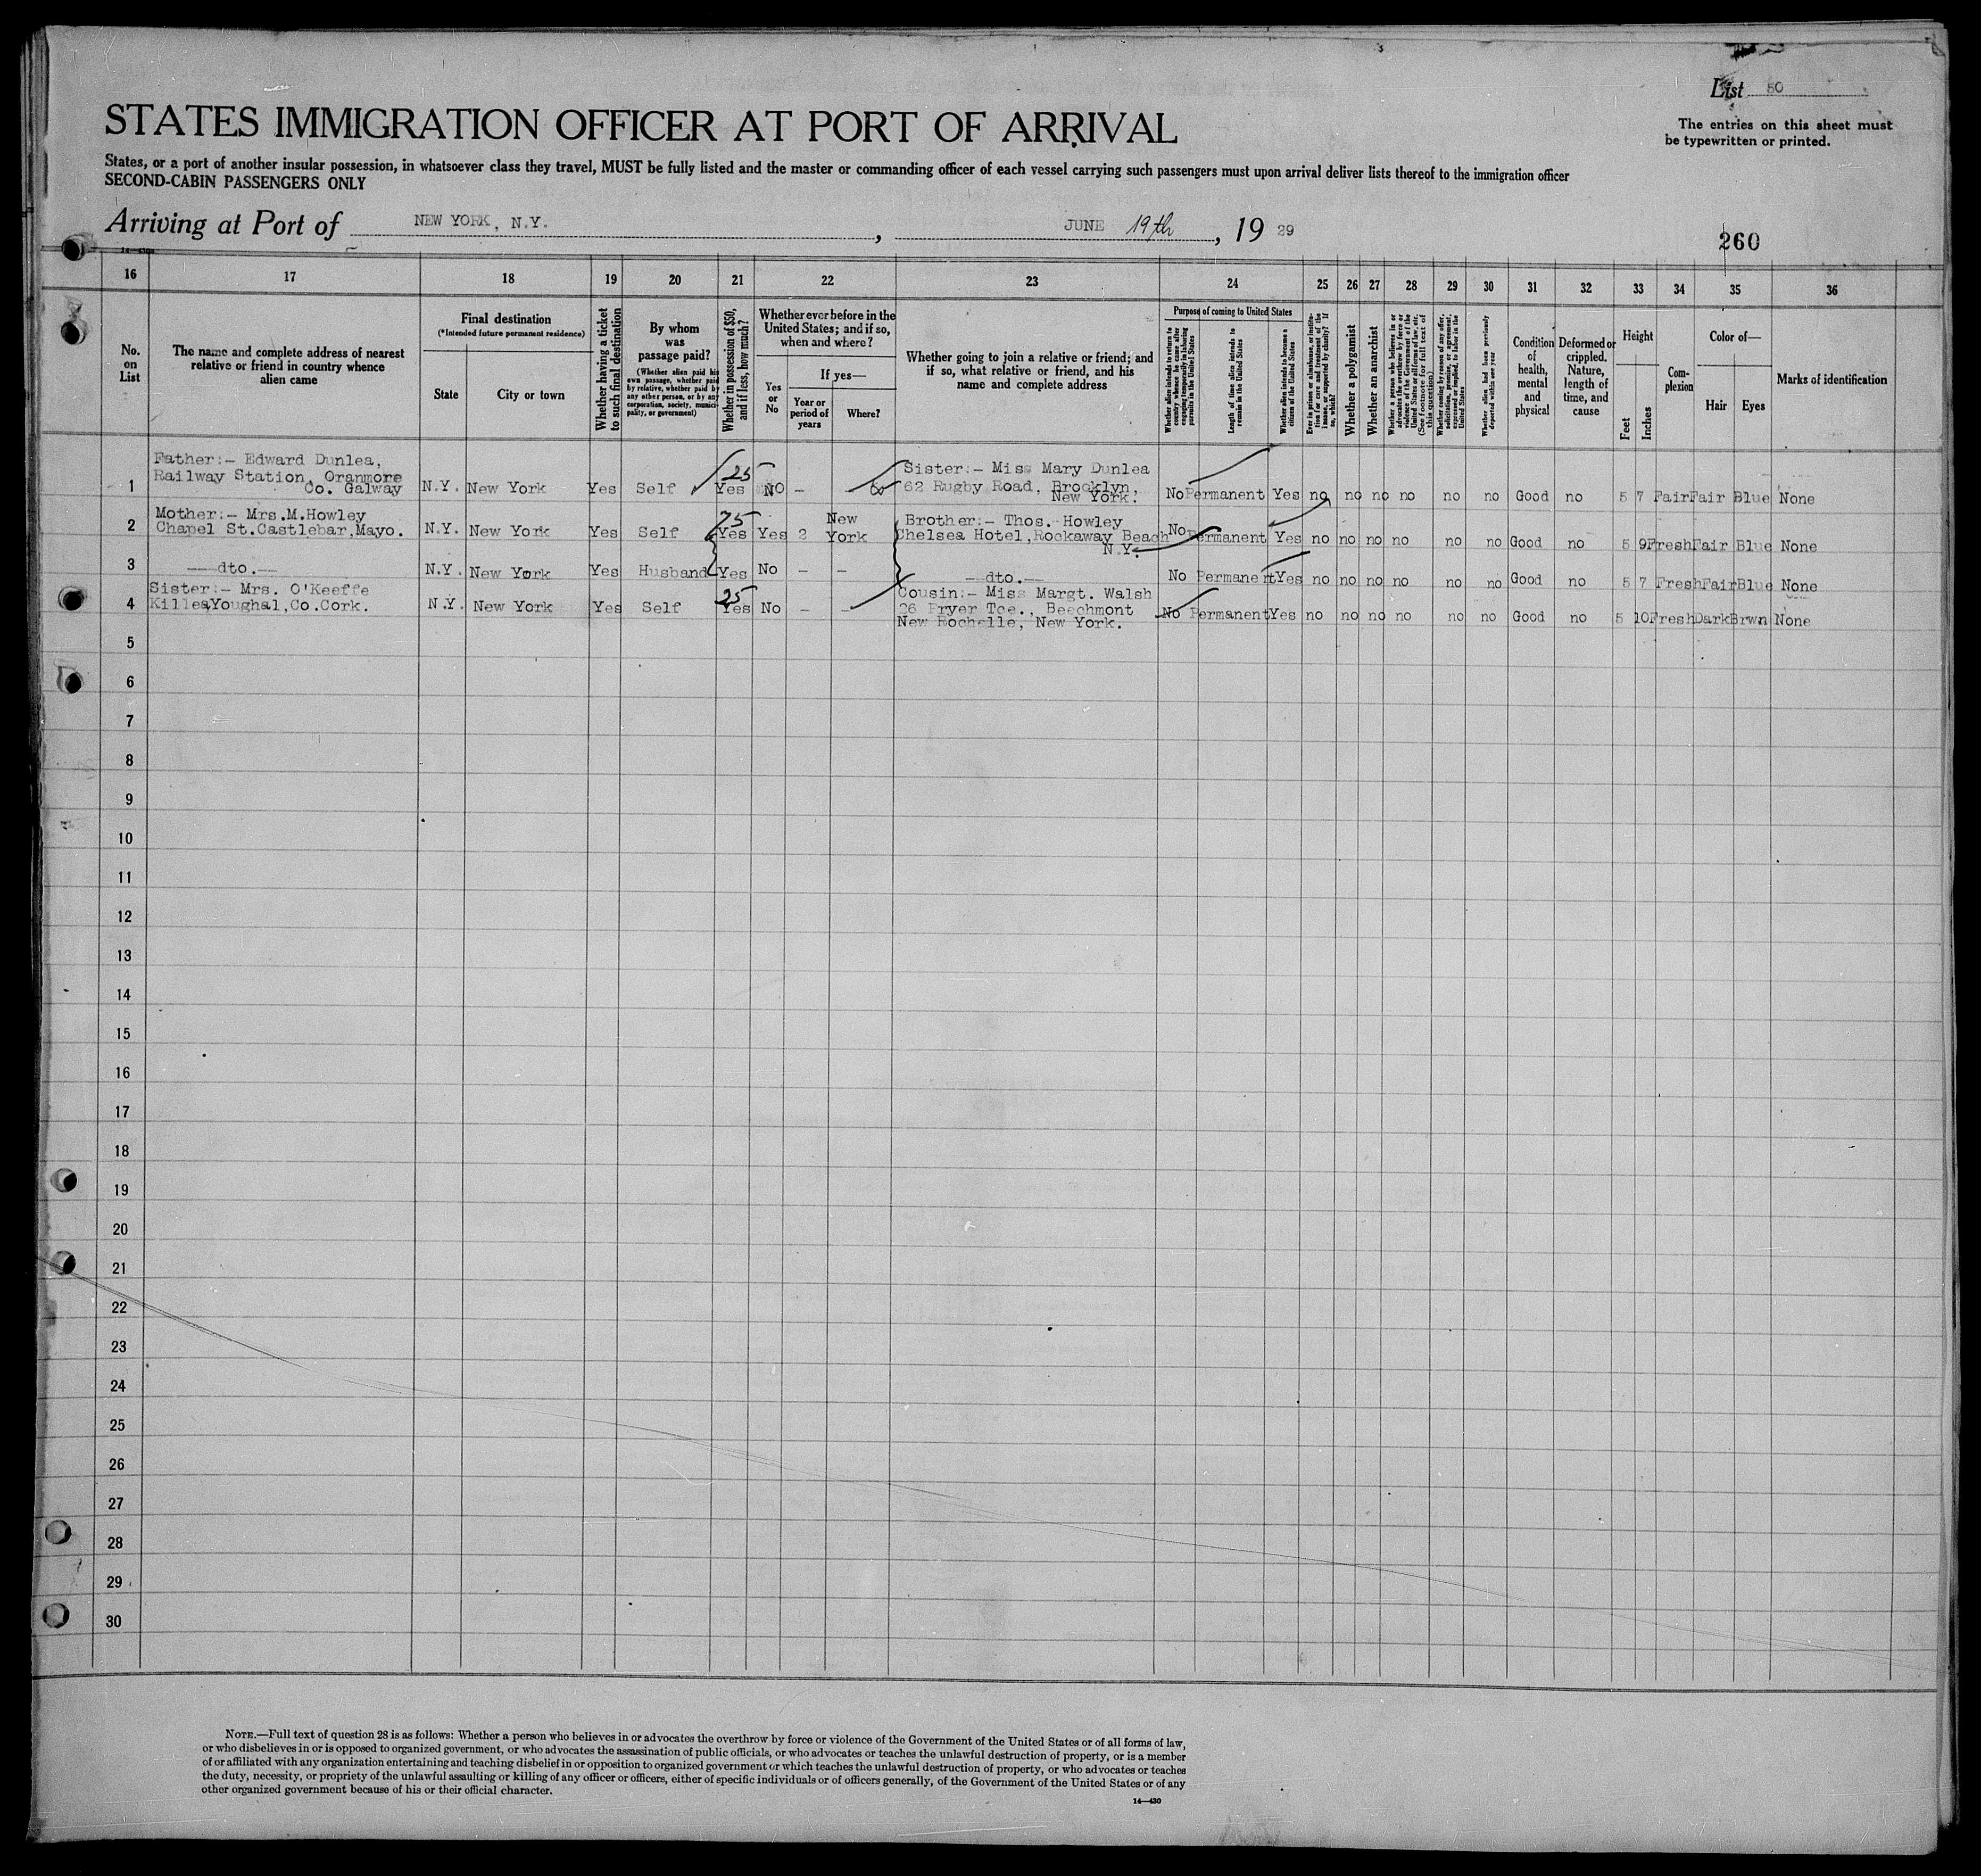 List 80
STATES IMMIGRATION OFFICER AT PORT OF ARRIVAL
The entries on this sheet must
be typewritten or printed.
States, or a port of another insular possession, in whatsoever class they travel, MUST be fully listed and the master or commanding officer of each vessel carrying such passengers must upon arrival deliver lists thereof to the immigration officer
SECOND-CABIN PASSENGERS ONLY
Arriving at Port of NEW YORK, N.Y. , JUNE 19th , 19 29
260
16 17 18 19 20 21 22 23 24 25 26 27 28 29 30 31 32 33 34 35 36
No.
on
List
The name and complete address of nearest
relative or friend in country whence
alien came
Final destination
(*Intended future permanent residence)
State
City or town
Whether having a ticket
to such final destination
By whom
was
passage paid?
(Whether alien paid his
own passage, whether paid
by relative, whether paid by
any other person, or by any
corporation, society, munici-
pality, or government)
Whether in possession of $50,
and if less, how much?
Whether ever before in the
United States; and if so,
when and where?
Yes
or
No
If yes—
Year or
period of
years
Where?
Whether going to join a relative or friend; and
if so, what relative or friend, and his
name and complete address
Purpose of coming to United States
Whether alien intends to return to
country whence he came after
engaging temporarily in laboring
pursuits in the United States
Length of time alien intends to
remain in the United States
Whether alien intends to become a
citizen of the United States
Ever in prison or almshouse, or institu-
tion for care and treatment of the
insane, or supported by charity? If
so, which?
Whether a polygamist
Whether an anarchist
Whether a person who believes in or
advocates the overthrow by force or
violence of the Government of the
United States or all forms of law, etc.
(See footnote for full text of
this question)
Whether coming by reason of any offer,
solicitation, promise, or agreement,
expressed or implied, to labor in the
United States
Whether alien had been previously
deported within one year
Condition
of
health,
mental
and
physical
Deformed or
crippled.
Nature,
length of
time, and
cause
Height
Feet
Inches
Com-
plexion
Color of—
Hair
Eyes
Marks of identification
Father:- Edward Dunlea,
Railway Station, Oranmore
Co. Galway
1 N.Y. New York Yes Self 25 Yes NO – – Sister:- Miss Mary Dunlea
62 Rugby Road, Brooklyn,
New York.
No Permanent Yes no no no no no no Good no 5 7 Fair Fair Blue None
Mother:- Mrs.M.Howley
Chapel St.Castlebar,Mayo.
2 N.Y. New York Yes Self 75 Yes Yes 2 New
York
Brother:- Thos. Howley
Chelsea Hotel,Rockaway Beach
N.Y.
No Permanent Yes no no no no no no Good no 5 9 Fresh Fair Blue None
3 ---dto.-- N.Y. New York Yes Husband Yes No – – --dto.-- No Permanent Yes no no no no no no Good no 5 7 Fresh Fair Blue None
Sister:- Mrs. O'Keeffe
Killea,Youghal,Co.Cork.
4 N.Y. New York Yes Self 25 Yes No – – Cousin:- Miss Margt. Walsh
26 Fryer Tce., Beechmont
New Rochelle, New York.
No Permanent Yes no no no no no no Good no 5 10 Fresh Dark Brwn None
5
6
7
8
9
10
11
12
13
14
15
16
17
18
19
20
21
22
23
24
25
26
27
28
29
30
NOTE.—Full text of question 28 is as follows: Whether a person who believes in or advocates the overthrow by force or violence of the Government of the United States or of all forms of law,
or who disbelieves in or is opposed to organized government, or who advocates the assassination of public officials, or who advocates or teaches the unlawful destruction of property, or is a member
of or affiliated with any organization entertaining and teaching disbelief in or opposition to organized government or which teaches the unlawful destruction of property, or who advocates or teaches
the duty, necessity, or propriety of the unlawful assaulting or killing of any officer or officers, either of specific individuals or of officers generally, of the Government of the United States or of any
other organized government because of his or their official character.
14—430